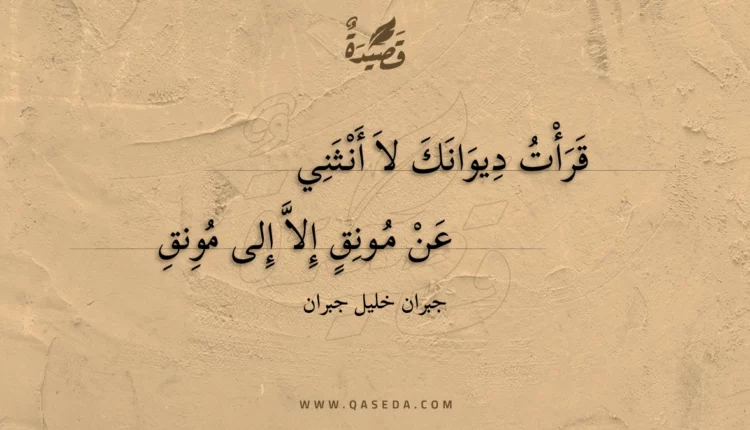 قَصِيدَةٌ
قَرَأْتُ دِيوَانَكَ لاَ أَنْثَنِي
عَنْ مُونِقٍ إِلاَّ إِلى مُوِنِقِ
جبران خليل جبران
WWW.QASEDA.COM